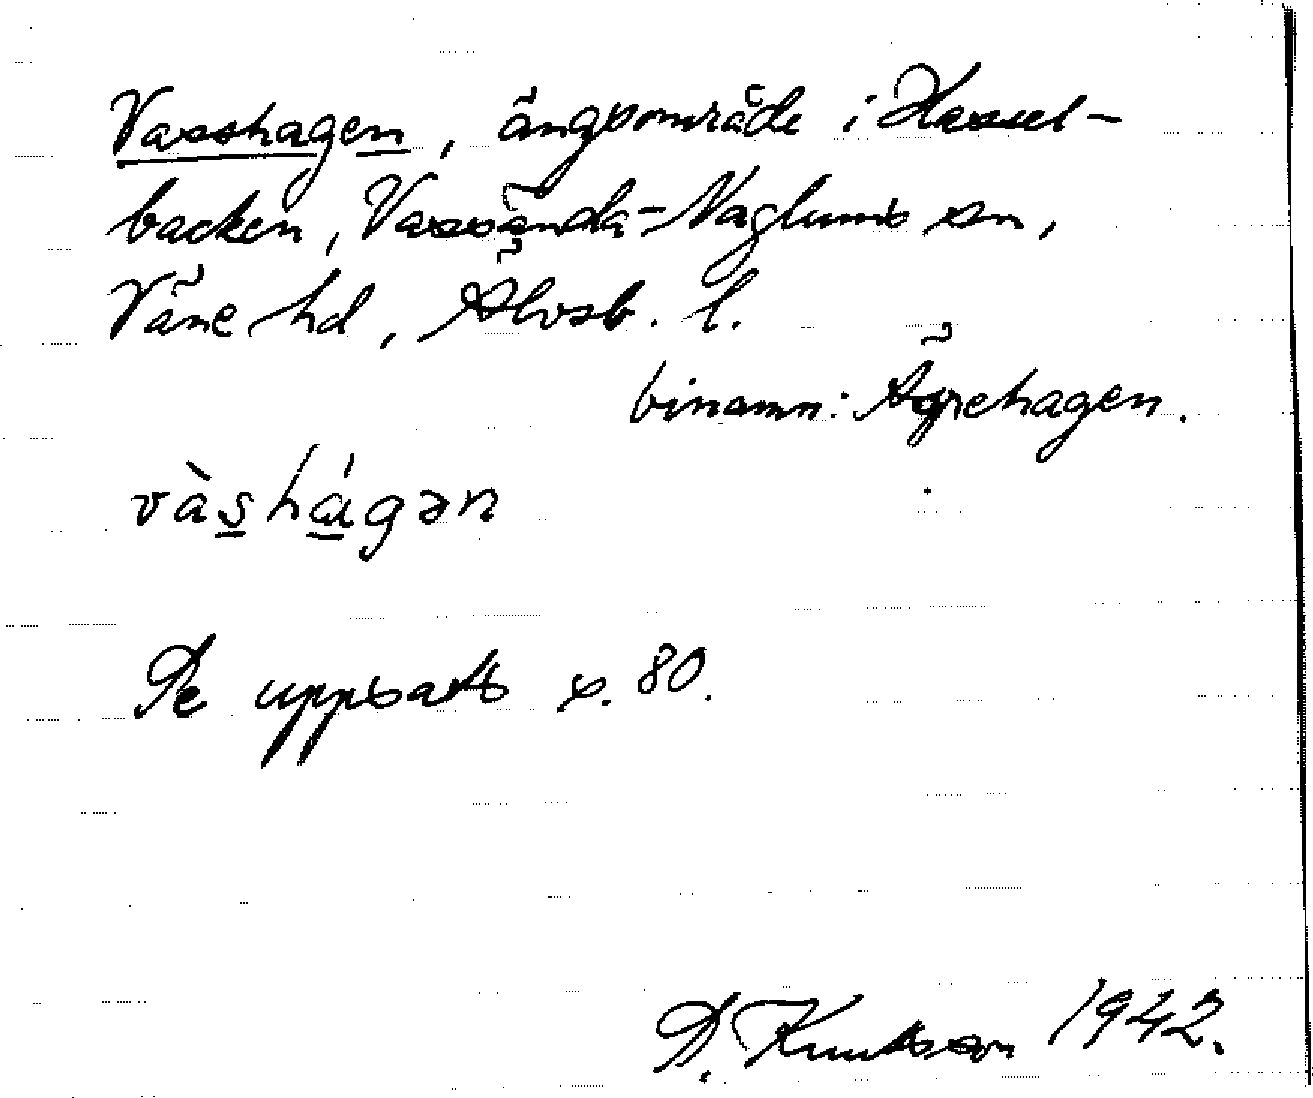 Vasshagen, ängsområde i Hassel-
backen, Vassända-Naglums sn,
Väne hd, Älvsb. l.
binamn: Ågrehagen.
vàs̠há̠gən
Se uppsats s. 80.
D. Knutsson 1942.